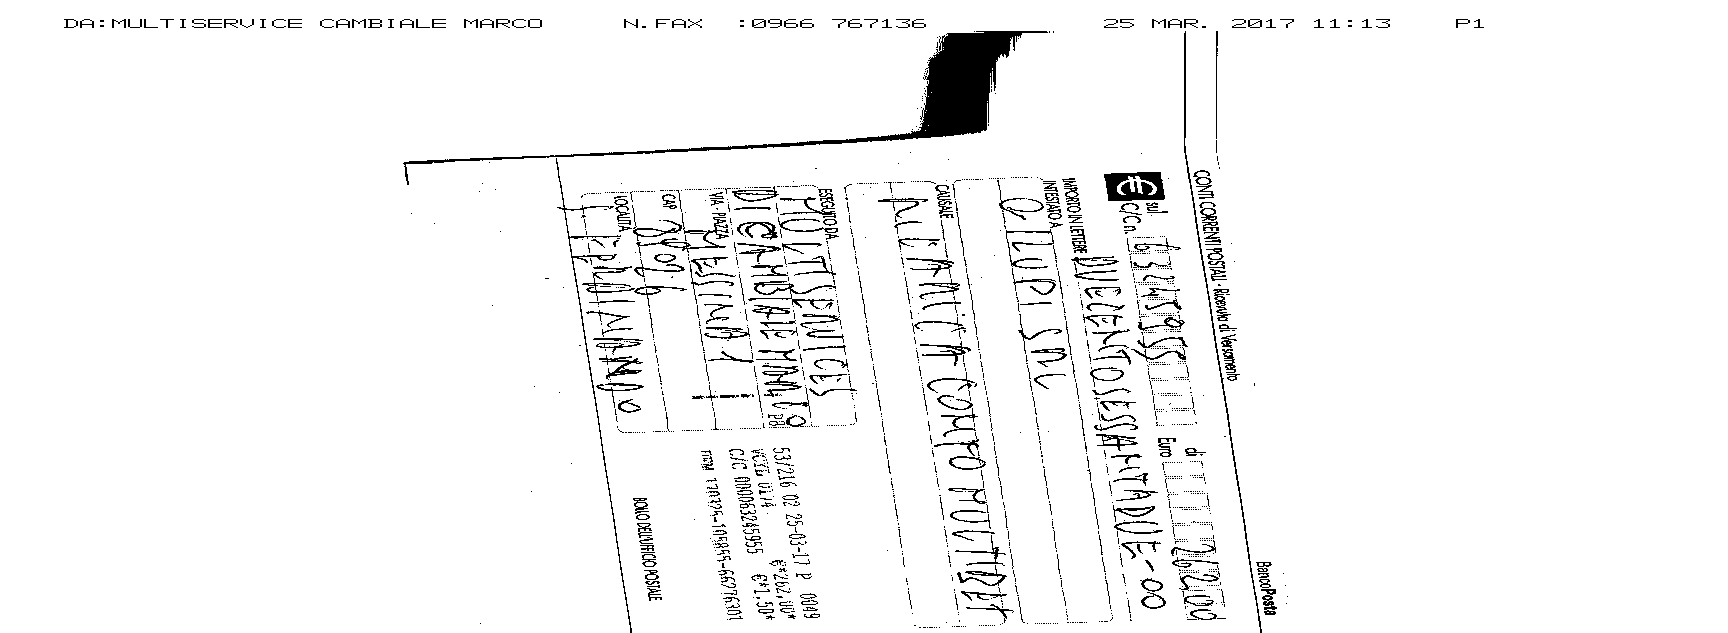 DA:MULTISERVICE CAMBIALE MARCO N.FAX :0966 767136 25 MAR. 2017 11:13 P1
CONTI CORRENTI POSTALI - Ricevuta di Versamento BancoPosta
€ sul C/C n. 63245955 di Euro 262,00
IMPORTO IN LETTERE DUECENTOSESSANTADUE-00
INTESTATO A
CILUPI SRL
CAUSALE
RICARICA CONTO MULTIBET
ESEGUITO DA
MULTISERVICES
DI CAMBIALE MARCO
VIA - PIAZZA
MESSINA 1
CAP
LOCALITÀ
53/216 02 25-03-17 P 0049
VCYL 0174 €*262,00*
C/C 000063245955 €*1,50*
BOLLO DELL'UFFICIO POSTALE